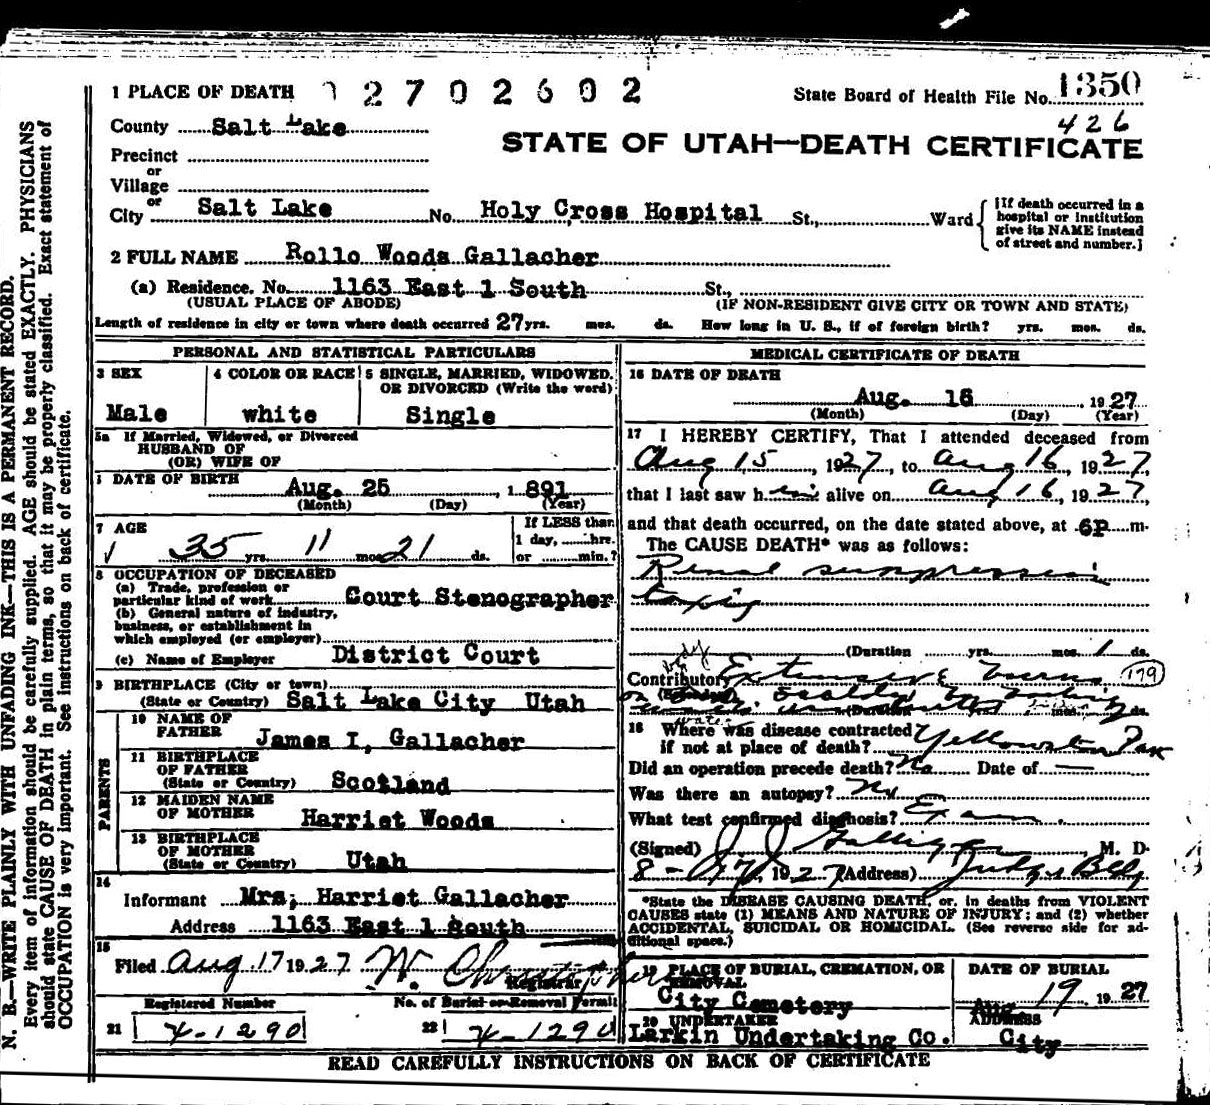 1 PLACE OF DEATH 02702602 State Board of Health File No. 1350
County Salt Lake 426
STATE OF UTAH—DEATH CERTIFICATE
Precinct
or
Village
or
City Salt Lake No. Holy Cross Hospital St., Ward
[If death occurred in a
hospital or institution
give its NAME instead
of street and number.]
2 FULL NAME Rollo Woods Gallacher
(a) Residence. No. 1163 East 1 South St.,
(USUAL PLACE OF ABODE) (IF NON-RESIDENT GIVE CITY OR TOWN AND STATE)
Length of residence in city or town where death occurred 27 yrs. mos. ds. How long in U. S., if of foreign birth? yrs. mos. ds.
PERSONAL AND STATISTICAL PARTICULARS
3 SEX 4 COLOR OR RACE 5 SINGLE, MARRIED, WIDOWED,
OR DIVORCED (Write the word)
Male white Single
5a If Married, Widowed, or Divorced
HUSBAND OF
(OR) WIFE OF
DATE OF BIRTH
Aug. 25, 1891
(Month) (Day) (Year)
7 AGE If LESS than
1 day, hrs.
35 yrs. 11 mos. 21 ds. or min.?
8 OCCUPATION OF DECEASED
(a) Trade, profession or
particular kind of work Court Stenographer
(b) General nature of industry,
business, or establishment in
which employed (or employer)
(c) Name of Employer District Court
9 BIRTHPLACE (City or town)
(State or Country) Salt Lake City Utah
PARENTS
10 NAME OF
FATHER James I. Gallacher
11 BIRTHPLACE
OF FATHER
(State or Country) Scotland
12 MAIDEN NAME
OF MOTHER Harriet Woods
13 BIRTHPLACE
OF MOTHER
(State or Country) Utah
14
Informant Mrs; Harriet Gallacher
Address 1163 East 1 South
15
Filed Aug 17 1927 W. Christopherson
Registrar
Registered Number No. of Burial or Removal Permit
21 X-1290 22 X-1290
MEDICAL CERTIFICATE OF DEATH
16 DATE OF DEATH
Aug. 16, 1927
(Month) (Day) (Year)
17 I HEREBY CERTIFY, That I attended deceased from
Aug 15, 1927, to Aug 16, 1927,
that I last saw him alive on Aug 16, 1927,
and that death occurred, on the date stated above, at 6P m.
The CAUSE DEATH* was as follows:
Renal suppression
(Duration yrs. mos. 1 ds.
body
Contributory Extensive burns 179
scalded
water
18 Where was disease contracted
if not at place of death? Yellowstone Park
Did an operation precede death? No Date of —
Was there an autopsy? No
What test confirmed diagnosis? Exam.
(Signed) J. J. Galligan, M. D.
8- 17, 1927 (Address) Judge Bldg
*State the DISEASE CAUSING DEATH, or, in deaths from VIOLENT
CAUSES state (1) MEANS AND NATURE OF INJURY; and (2) whether
ACCIDENTAL, SUICIDAL OR HOMICIDAL. (See reverse side for ad-
ditional space.)
19 PLACE OF BURIAL, CREMATION, OR
REMOVAL
City Cemetery
DATE OF BURIAL
Aug. 19, 1927
20 UNDERTAKER
Larkin Undertaking Co.
ADDRESS
City
READ CAREFULLY INSTRUCTIONS ON BACK OF CERTIFICATE
N. B.—WRITE PLAINLY WITH UNFADING INK—THIS IS A PERMANENT RECORD.
Every item of information should be carefully supplied. AGE should be stated EXACTLY. PHYSICIANS
should state CAUSE OF DEATH in plain terms, so that it may be properly classified. Exact statement of
OCCUPATION is very important. See instructions on back of certificate.